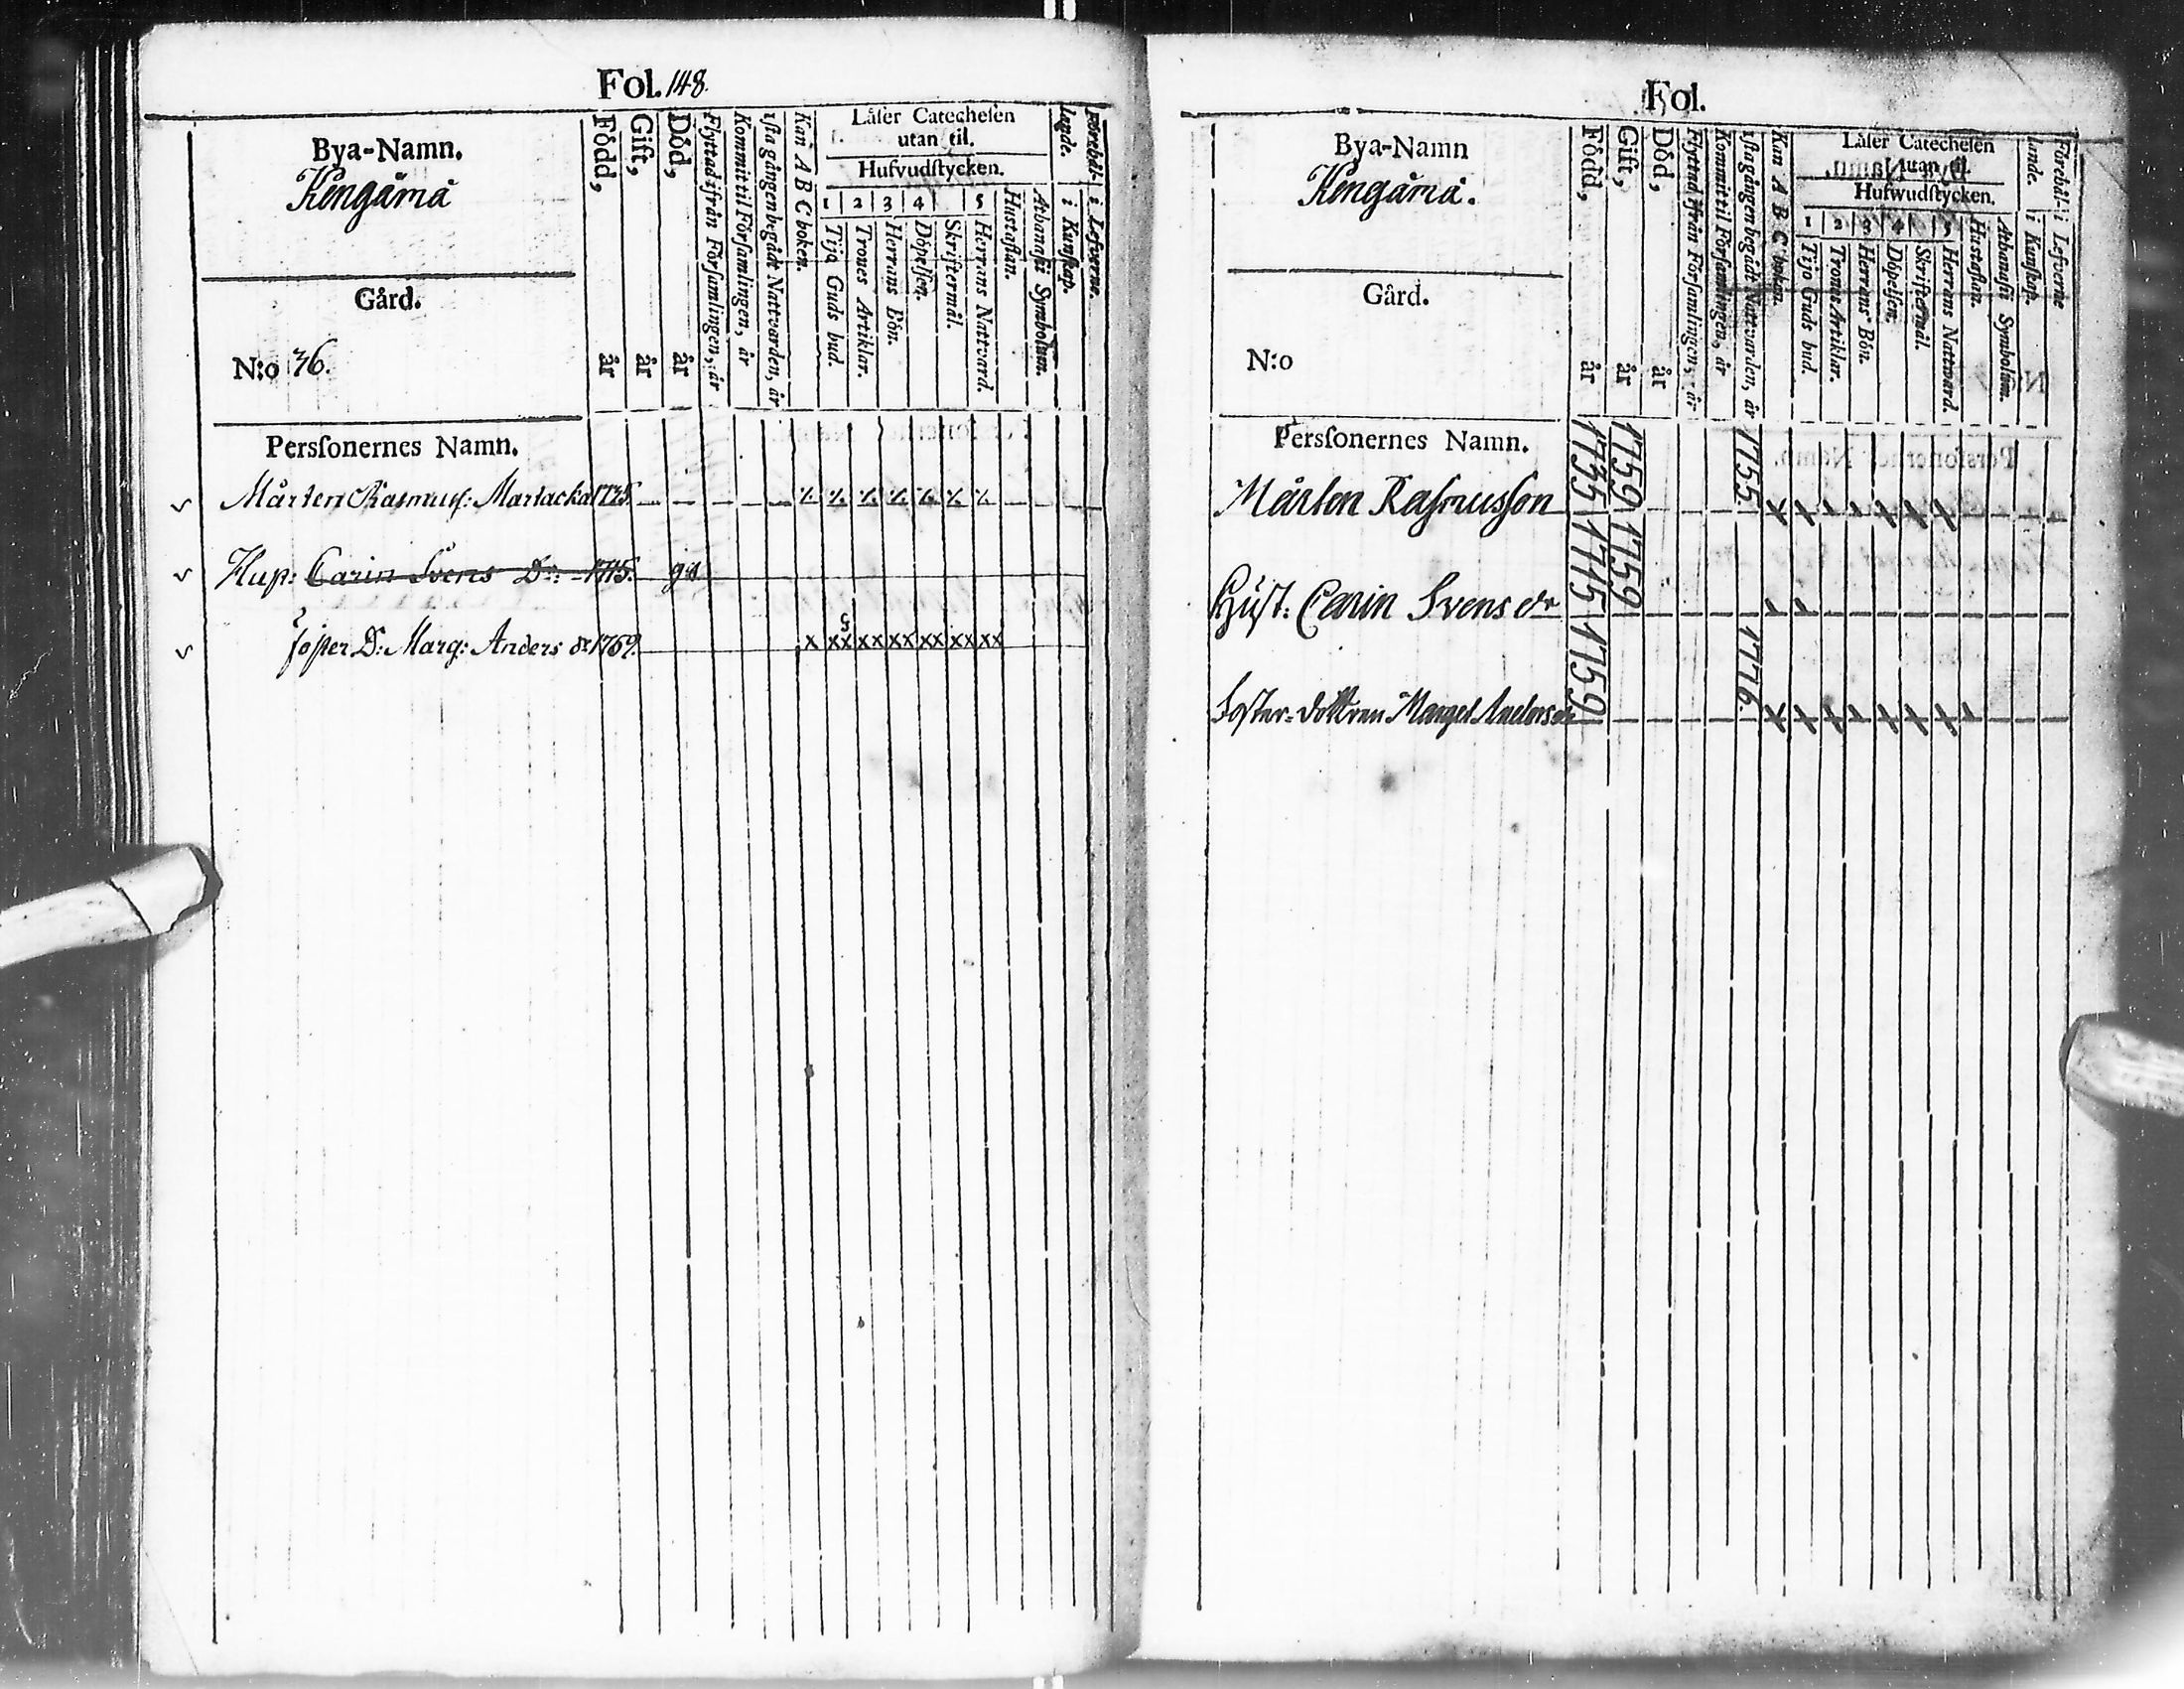 Fol. 148.
Bya-Namn.
Kengämä
Gård.
N:o 36.
Född, år
Gift, år
Död, år
Flyttad ifrån Församlingen, år
Kommit til Församlingen, år
1sta gången begådt Nattvarden, år
Kan A B C boken.
Läſer Catecheſen
utan til.
Hufvudſtycken.
1 2 3 4 5
Tijo Guds bud.
Trones Artiklar.
Herrans Bön.
Döpelſen.
Skriftermål.
Herrans Nattvard.
Huſtaflan.
Athanaſii Symbolum.
Förehål-
lande.
i Kunſkap.
i Lefverne.
Perſonernes Namn.
Mårten Rasmuſ: Martacka 1735.
Hup: Carin Svens Dr: 1715.
foster D: Marg: Anders dr 1759.
x xx xx xx xx xx xx
Fol.
Bya-Namn
Kengämä.
Gård.
N:o
Född, år
Gift, år
Död, år
Flyttad ifrån Församlingen, år
Kommit til Församlingen, år
1sta gången begådt Nattvarden, år
Kan A B C boken.
Läſer Catecheſen
utan til.
Hufwudſtycken.
1 2 3 4 5
Tijo Guds bud.
Trones Artiklar.
Herrans Bön.
Döpelſen.
Skriftermål.
Herrans Nattvard.
Huſtaflan.
Athanaſii Symbolum.
Förehål-
lande.
i Kunſkap.
i Lefverne
Perſonernes Namn.
Mårten Raſmusſon 1735 1759 1755.
Huſt: Carin Svens dr 1715 1759
Foſter-dottren Marget Anders dr 1759 1776.